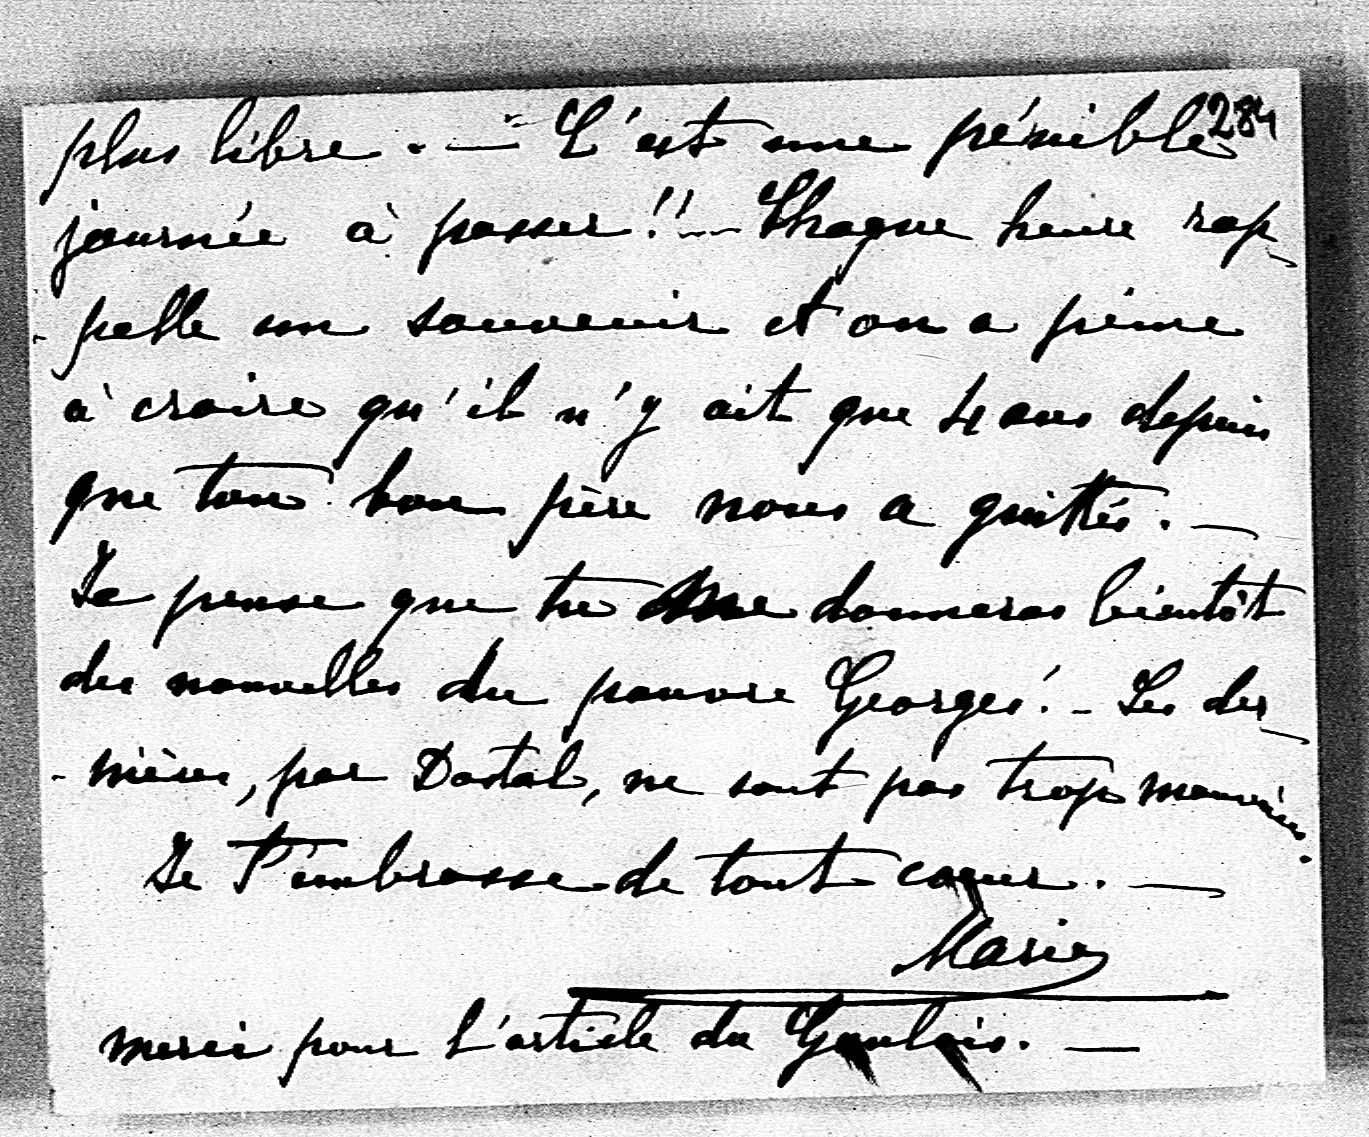 284
plus libre. — C'est une pénible
journée à passer!! — Chaque heure rap-
-pelle un souvenir et on a peine
à croire qu'il n'y ait que 4 ans depuis
que ton bon père nous a quittés. —
Je pense que tu me donneras bientôt
des nouvelles du pauvre Georges! - Les der-
-nières, par Dastal, ne sont pas trop mauvaises.
Je t'embrasse de tout coeur. —
Marie
merci pour l'article du Gaulois. —